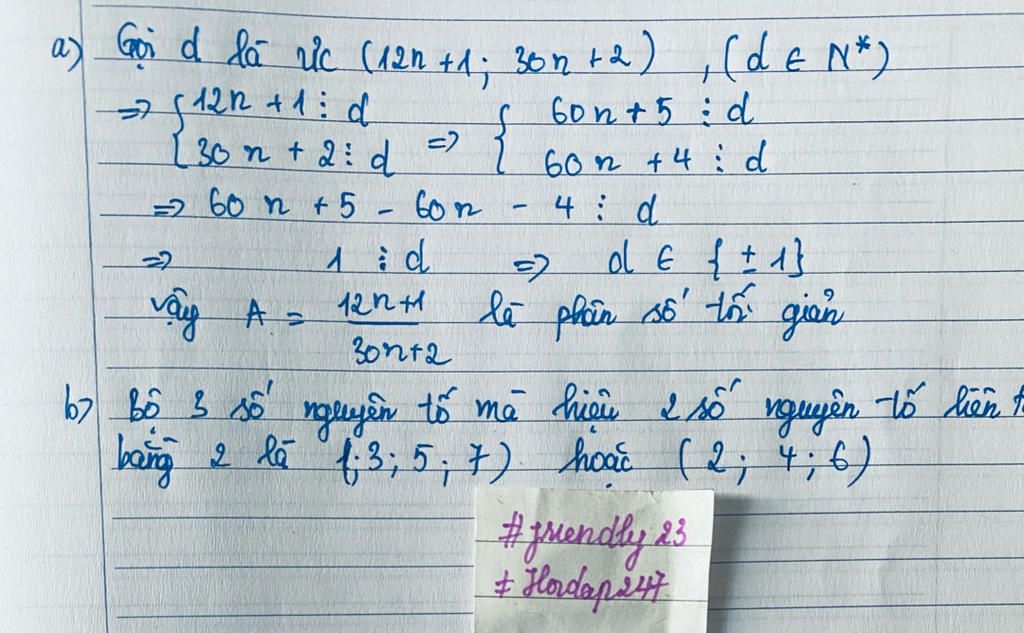 a) Gọi d là ƯC (12n+1; 30n+2), (d ∈ N*)
=> { 12n+1 ⋮ d
30n+2 ⋮ d => { 60n+5 ⋮ d
60n+4 ⋮ d
=> 60n+5-60n-4 ⋮ d
=> 1 ⋮ d => d ∈ {±1}
vậy A = 12n+1 / 30n+2 là phân số tối giản
b) Bộ 3 số nguyên tố mà hiệu 2 số nguyên tố liên t
bằng 2 là (3; 5; 7) hoặc (2; 4; 6)
#friendly23
# Hoidap247